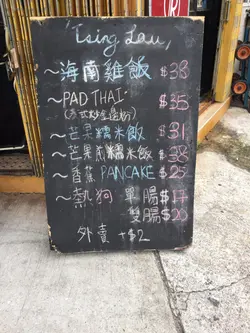 Tsing Lau,
~海南雞飯 $38
~PAD THAI $35
~芒果糯米飯 $31
~芒果 糯米飯 $38
~香蕉 PANCAKE $25
~熱狗 單腸 $17
雙腸 $20
外賣 +$2